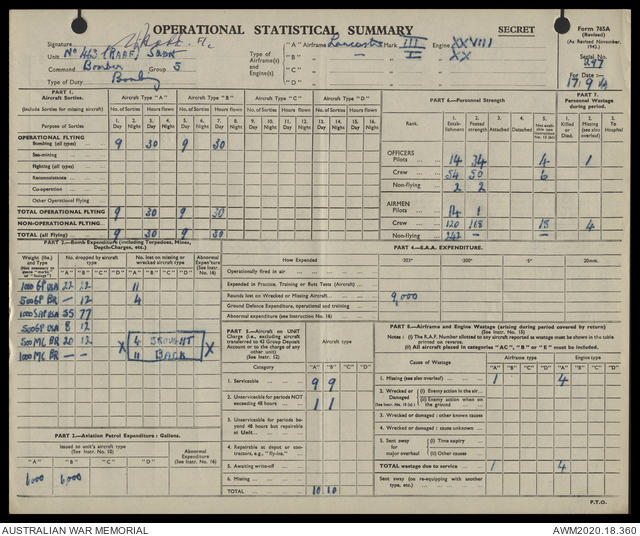 OPERATIONAL STATISTICAL SUMMARY
SECRET
Form 765A
(Revised)
(As Revised November, 1943.)
Signature
Unit No 463 (RAAF) SQDN
Command Bomber Group 5
Type of Duty Bombing
Type of Airframe(s) and Engine(s):
"A" Airframe Lancaster Mark III Engine XXVIII
"B" — I XX
"C"
"D"
Serial No. 297
For Date
17.9.44
PART 1.
Aircraft Sorties.
(include Sorties for missing aircraft)
Aircraft Type "A" Aircraft Type "B" Aircraft Type "C" Aircraft Type "D"
No. of Sorties Hours flown No. of Sorties Hours flown No. of Sorties Hours flown No. of Sorties Hours flown
Purpose of Sorties
1. Day 2. Night 3. Day 4. Night 5. Day 6. Night 7. Day 8. Night 9. Day 10. Night 11. Day 12. Night 13. Day 14. Night 15. Day 16. Night
OPERATIONAL FLYING
Bombing (all types) 9 30 9 30
Sea-mining
Fighting (all types)
Reconnaissance
Co-operation
Other Operational Flying
TOTAL OPERATIONAL FLYING 9 30 9 30
NON-OPERATIONAL FLYING
TOTAL (all Flying) 9 30 9 30
PART 6.—Personnel Strength
PART 7.
Personnel Wastage during period.
Rank.
1. Establishment
2. Posted strength
3. Attached
4. Detached
1. Killed or Died.
2. Missing (see also overleaf)
3. To Hospital
OFFICERS
Pilots 14 34 4 1
Crew 54 50 6
Non-flying 2 2
AIRMEN
Pilots 14 1
Crew 120 168 15 4
Non-flying 242 —
PART 2.—Bomb Expenditure (including Torpedoes, Mines, Depth-Charges, etc.)
Weight (lbs.) and Type
No. dropped by aircraft type
No. lost on missing or wrecked aircraft type
Abnormal Expend're (See Instr. No. 16)
"A" "B" "C" "D" "A" "B" "C" "D"
1000 GP USA 22 22 11
500 GP BR — 12 4
1000 SAP USA 55 77
500 GP USA 8 12
500 MC BR 20 12 X 4 BROUGHT X
1000 MC BR — — 11 BACK
PART 3.—Aviation Petrol Expenditure : Gallons.
Issued to unit's aircraft type
(See Instr. No. 10)
Abnormal Expenditure (See Instr. No. 16)
"A" "B" "C" "D"
6,000 6,000
PART 4.—S.A.A. EXPENDITURE.
How Expended ·303" ·300" ·5" 20mm.
Operationally fired in air
Expended in Practice, Training or Butt Tests (Aircraft)
Rounds lost on Wrecked or Missing Aircraft 9,000
Ground Defence Expenditure, operational and training
Abnormal expenditure (see Instruction No. 16)
PART 5.—Aircraft on UNIT Charge (i.e., excluding aircraft transferred to 43 Group Deposit Account or to the charge of any other unit)
(See Instr. 12)
Aircraft type
Category "A" "B" "C" "D"
1. Serviceable 9 9
2. Unserviceable for periods NOT exceeding 48 hours 1 1
3. Unserviceable for periods beyond 48 hours but repairable at Unit
4. Repairable at depot or contractors, e.g., "fly-ins."
5. Awaiting write-off
6. Missing
TOTAL 10 10
PART 8.—Airframe and Engine Wastage (arising during period covered by return)
(See Instr. No. 15)
Notes : (i) The R.A.F. Number allotted to any aircraft reported as wastage must be shown in the table printed on reverse.
(ii) All aircraft placed in categories "AC", "B" or "E" must be included.
Cause of Wastage
Airframe type Engine type
"A" "B" "C" "D" "A" "B" "C" "D"
1. Missing (see also overleaf) 1 4
2. Wrecked or Damaged
(i) Enemy action in the air
(ii) Enemy action when on the ground
3. Wrecked or damaged : other known causes
4. Wrecked or damaged : cause unknown
5. Sent away for major overhaul
(i) Time expiry
(ii) Other causes
TOTAL wastage due to service 1 4
Sent away (on re-equipping with another type, etc.)
P.T.O.
AUSTRALIAN WAR MEMORIAL
AWM2020.18.360